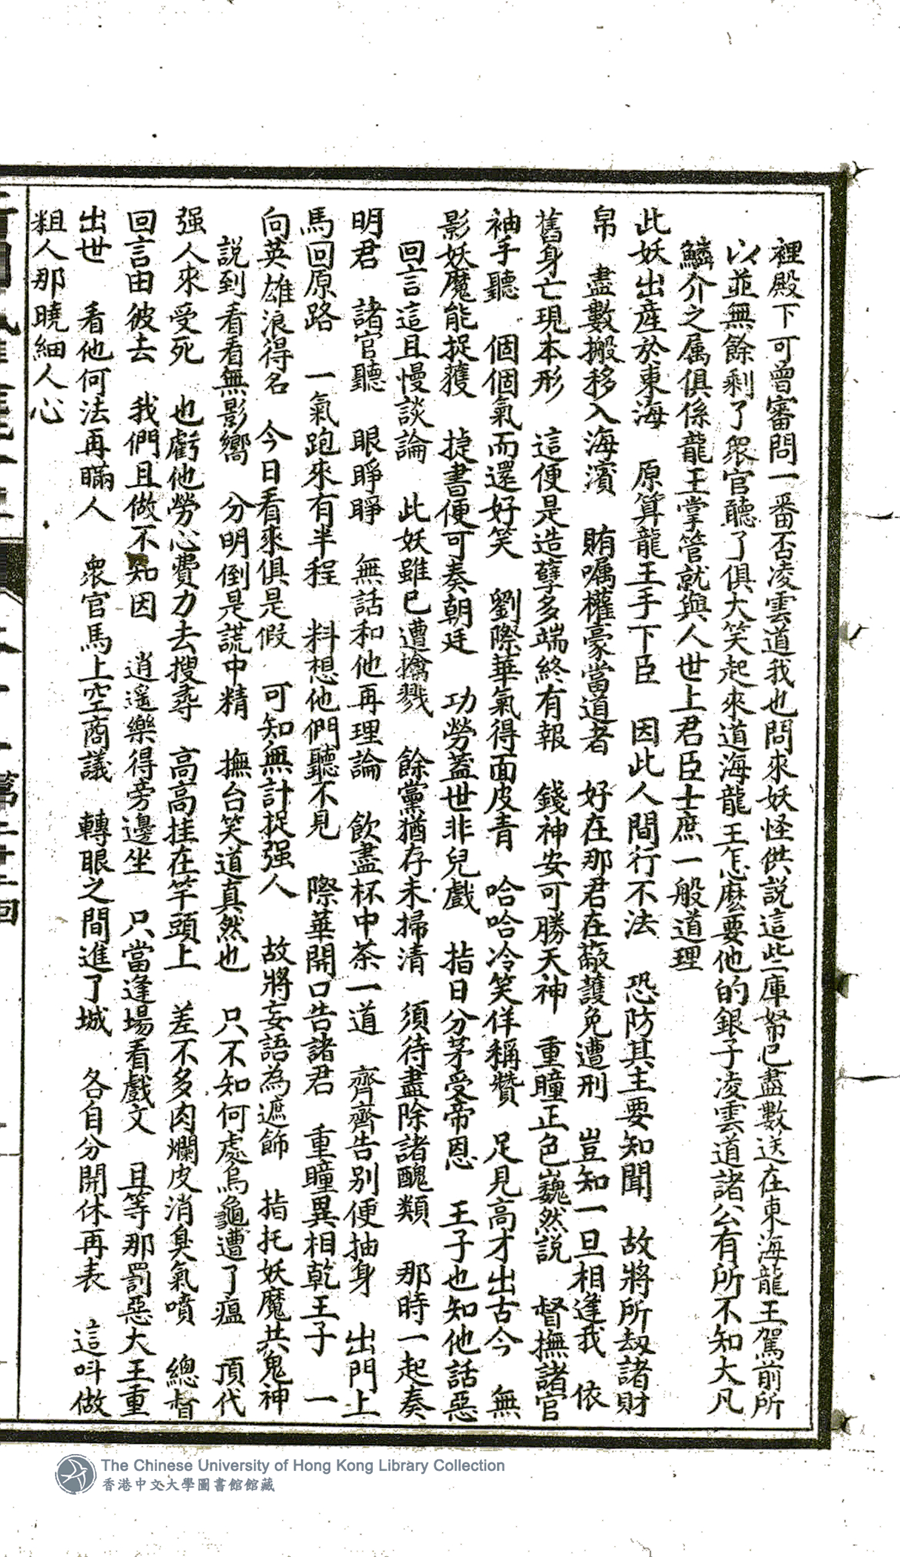 裡殿下可曾審問一番否凌雲道我也問來妖怪供説這些庫帑已盡數送在東海龍王駕前所
以並無餘剩了衆官聽了俱大笑起來道海龍王怎麽要他的銀子凌雲道諸公有所不知大凡
鱗介之属俱係龍王掌管就與人世上君臣士庶一般道理
此妖出產於東海　原算龍王手下臣　因此人間行不法　恐防其主要知聞　故將所刼諸財
帛　盡數搬移入海濱　賄嘱權豪當道者　好在那君在蔽護免遭刑　豈知一旦相逢我　依
舊身亡現本形　這便是造孽多端終有報　錢神安可勝天神　重瞳正色巍然説　督撫諸官
袖手聽　個個氣而還好笑　劉際華氣得面皮青　哈哈冷笑佯稱贊　足見高才出古今　無
影妖魔能捉獲　捷書便可奏朝廷　功勞蓋世非兒戲　指日分茅受帝恩　王子也知他話惡
回言這且慢談論　此妖雖已遭擒戮　餘黨猶存未掃清　須待盡除諸醜類　那時一起奏
明君　諸官聽　眼睜睜　無話和他再理論　飲盡杯中茶一道　齊齊告别便抽身　出門上
馬回原路　一氣跑來有半程　料想他們聽不見　際華開口告諸君　重瞳異相乾王子　一
向英雄浪得名　今日看來俱是假　可知無計捉强人　故將妄語為遮飾　指托妖魔共鬼神
説到看看無影嚮　分明倒是謊中精　撫台笑道真然也　只不知何處烏龜遭了瘟　頂代
强人來受死　也虧他勞心費力去搜尋　高高挂在竿頭上　差不多肉爛皮消臭氣噴　總督
回言由彼去　我們且做不知因　逍遥樂得旁邊坐　只當逢場看戲文　且等那罰惡大王重
出世　看他何法再瞞人　衆官馬上空商議　轉眼之間進了城　各自分開休再表　這呌做
粗人那曉細人心
第二十二回
The Chinese University of Hong Kong Library Collection
香港中文大學圖書館館藏